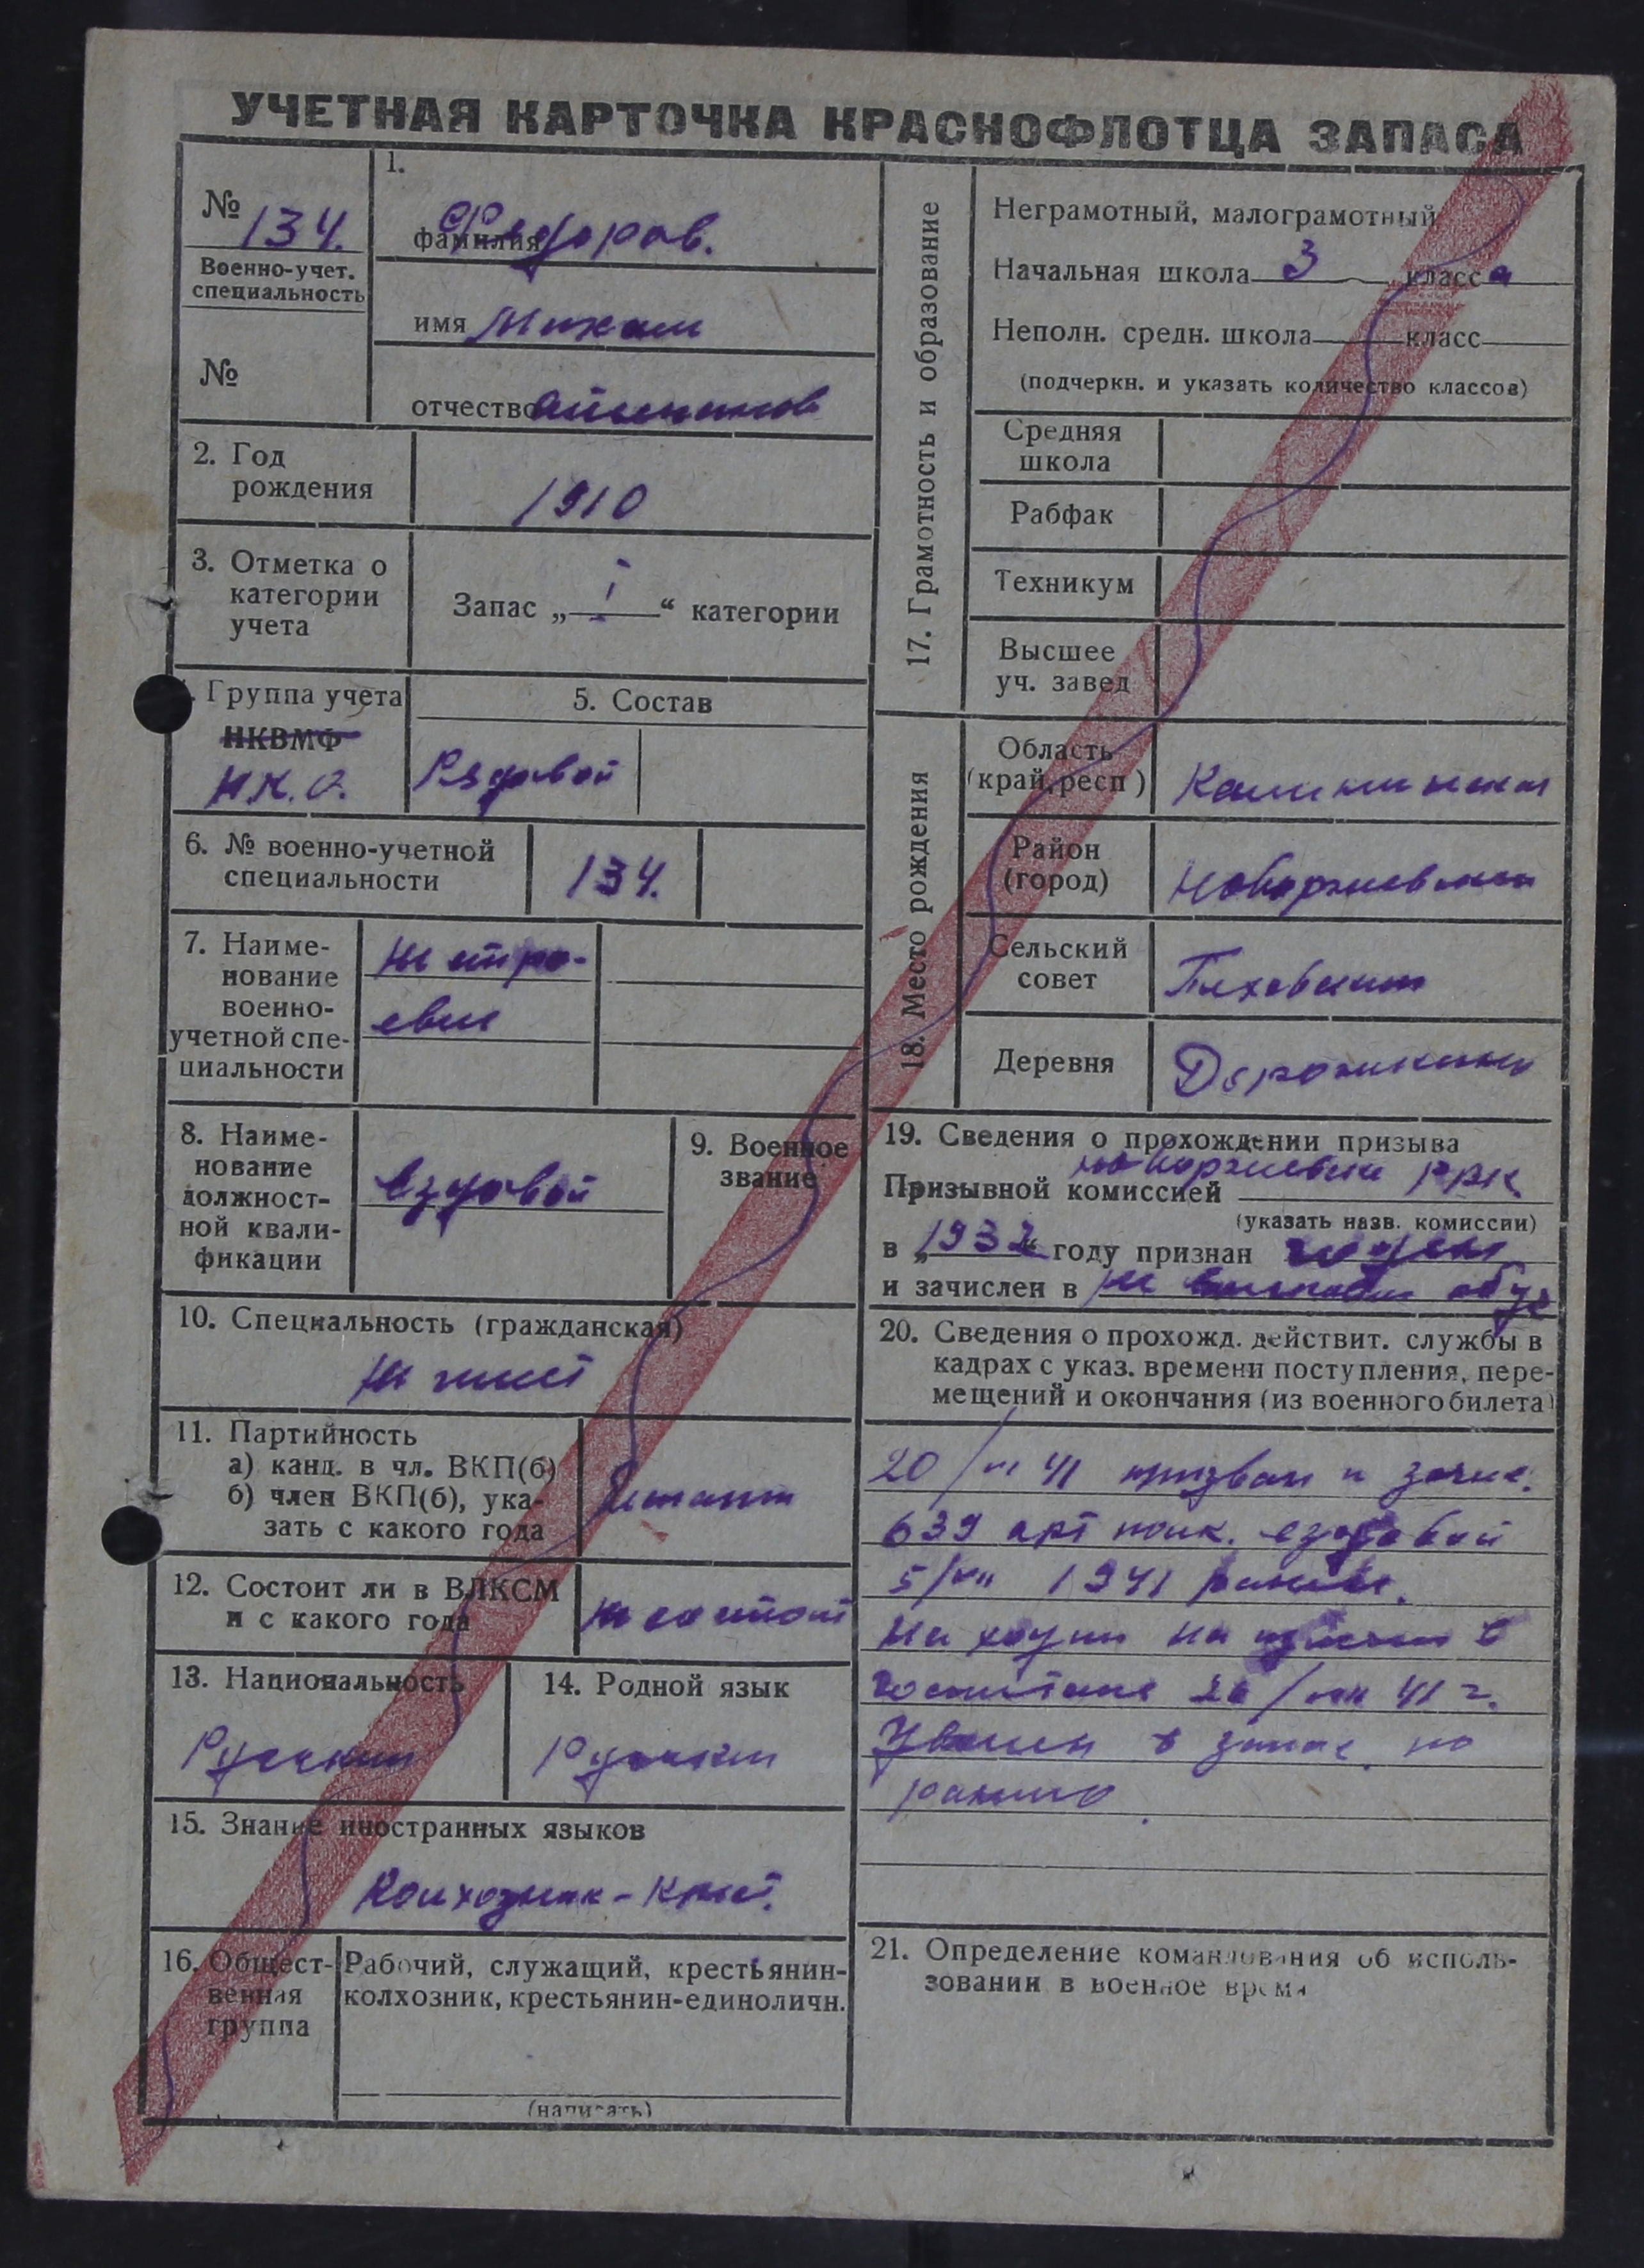 УЧЕТНАЯ КАРТОЧКА КРАСНОФЛОТЦА ЗАПАСА
№ 134.
Военно-учет.
специальность
№
1.
фамилия Федоров.
имя Михаил
отчество
2. Год
рождения
1910
3. Отметка о
категории
учета
Запас „ I “ категории
Группа учета
НКВМФ
Н.К.О.
5. Состав
Рядовой
6. № военно-учетной
специальности
134.
7. Наиме-
нование
военно-
учетной спе-
циальности
Не строе-
евые
8. Наиме-
нование
должност-
ной квали-
фикации
Ездовой
9. Военное
звание
10. Специальность (гражданская)
Не имеет
11. Партийность
а) канд. в чл. ВКП(б)
б) член ВКП(б), ука-
зать с какого года
12. Состоит ли в ВЛКСМ
и с какого года
не состоит
13. Национальность
Русский
14. Родной язык
Русский
15. Знание иностранных языков
Колхозник-
16. Общест-
венная
группа
Рабочий, служащий, крестьянин-
колхозник, крестьянин-единоличн.
(написать)
17. Грамотность и образование
Неграмотный, малограмотный
Начальная школа 3 класса
Неполн. средн. школа класс
(подчеркн. и указать количество классов)
Средняя
школа
Рабфак
Техникум
Высшее
уч. завед
18. Место рождения
Область
(край, респ)
Калининская
Район
(город)
Новоржевский
Сельский
совет
Деревня
19. Сведения о прохождении призыва
Призывной комиссией Новоржевский РВК
(указать назв. комиссии)
в „1932“ году признан годен
и зачислен в
20. Сведения о прохожд. действит. службы в
кадрах с указ. времени поступления, пере-
мещений и окончания (из военного билета)
20/ 41 призван и зачис.
639 арт полк. ездовой
5/ 1941 ранен.
На ходил на излечен в
госпитале / 41 г.
Уволен в запас по
ранению
21. Определение командования об исполь-
зовании в военное время